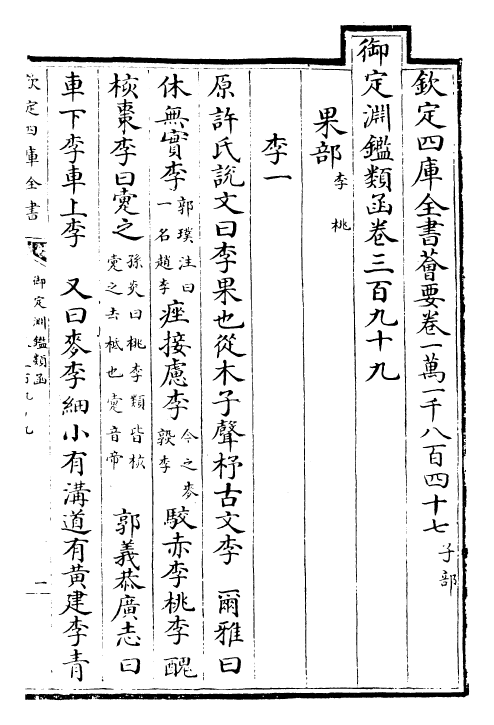 欽定四庫全書薈要卷一萬一千八百四十七 子部
御定淵鑑類函卷三百九十九
果部 李 桃
李一
原許氏說文曰李果也從木子聲杍古文李 爾雅曰
休無實李 郭璞注曰一名趙李 痤接慮李 今之麥李 駁赤李桃李醜
核棗李曰疐之 孫炎曰桃李類皆核疐之去柢也疐音帝 郭義恭廣志曰
車下李車上李 又曰麥李細小有溝道有黃建李青
欽定四庫全書
御定淵鑑類函
一